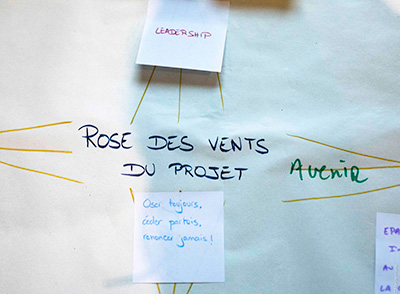 LEADERSHIP
ROSE DES VENTS
DU PROJET
Avenir
Oser toujours,
céder parfois,
renoncer jamais !
EPA
AU
LA